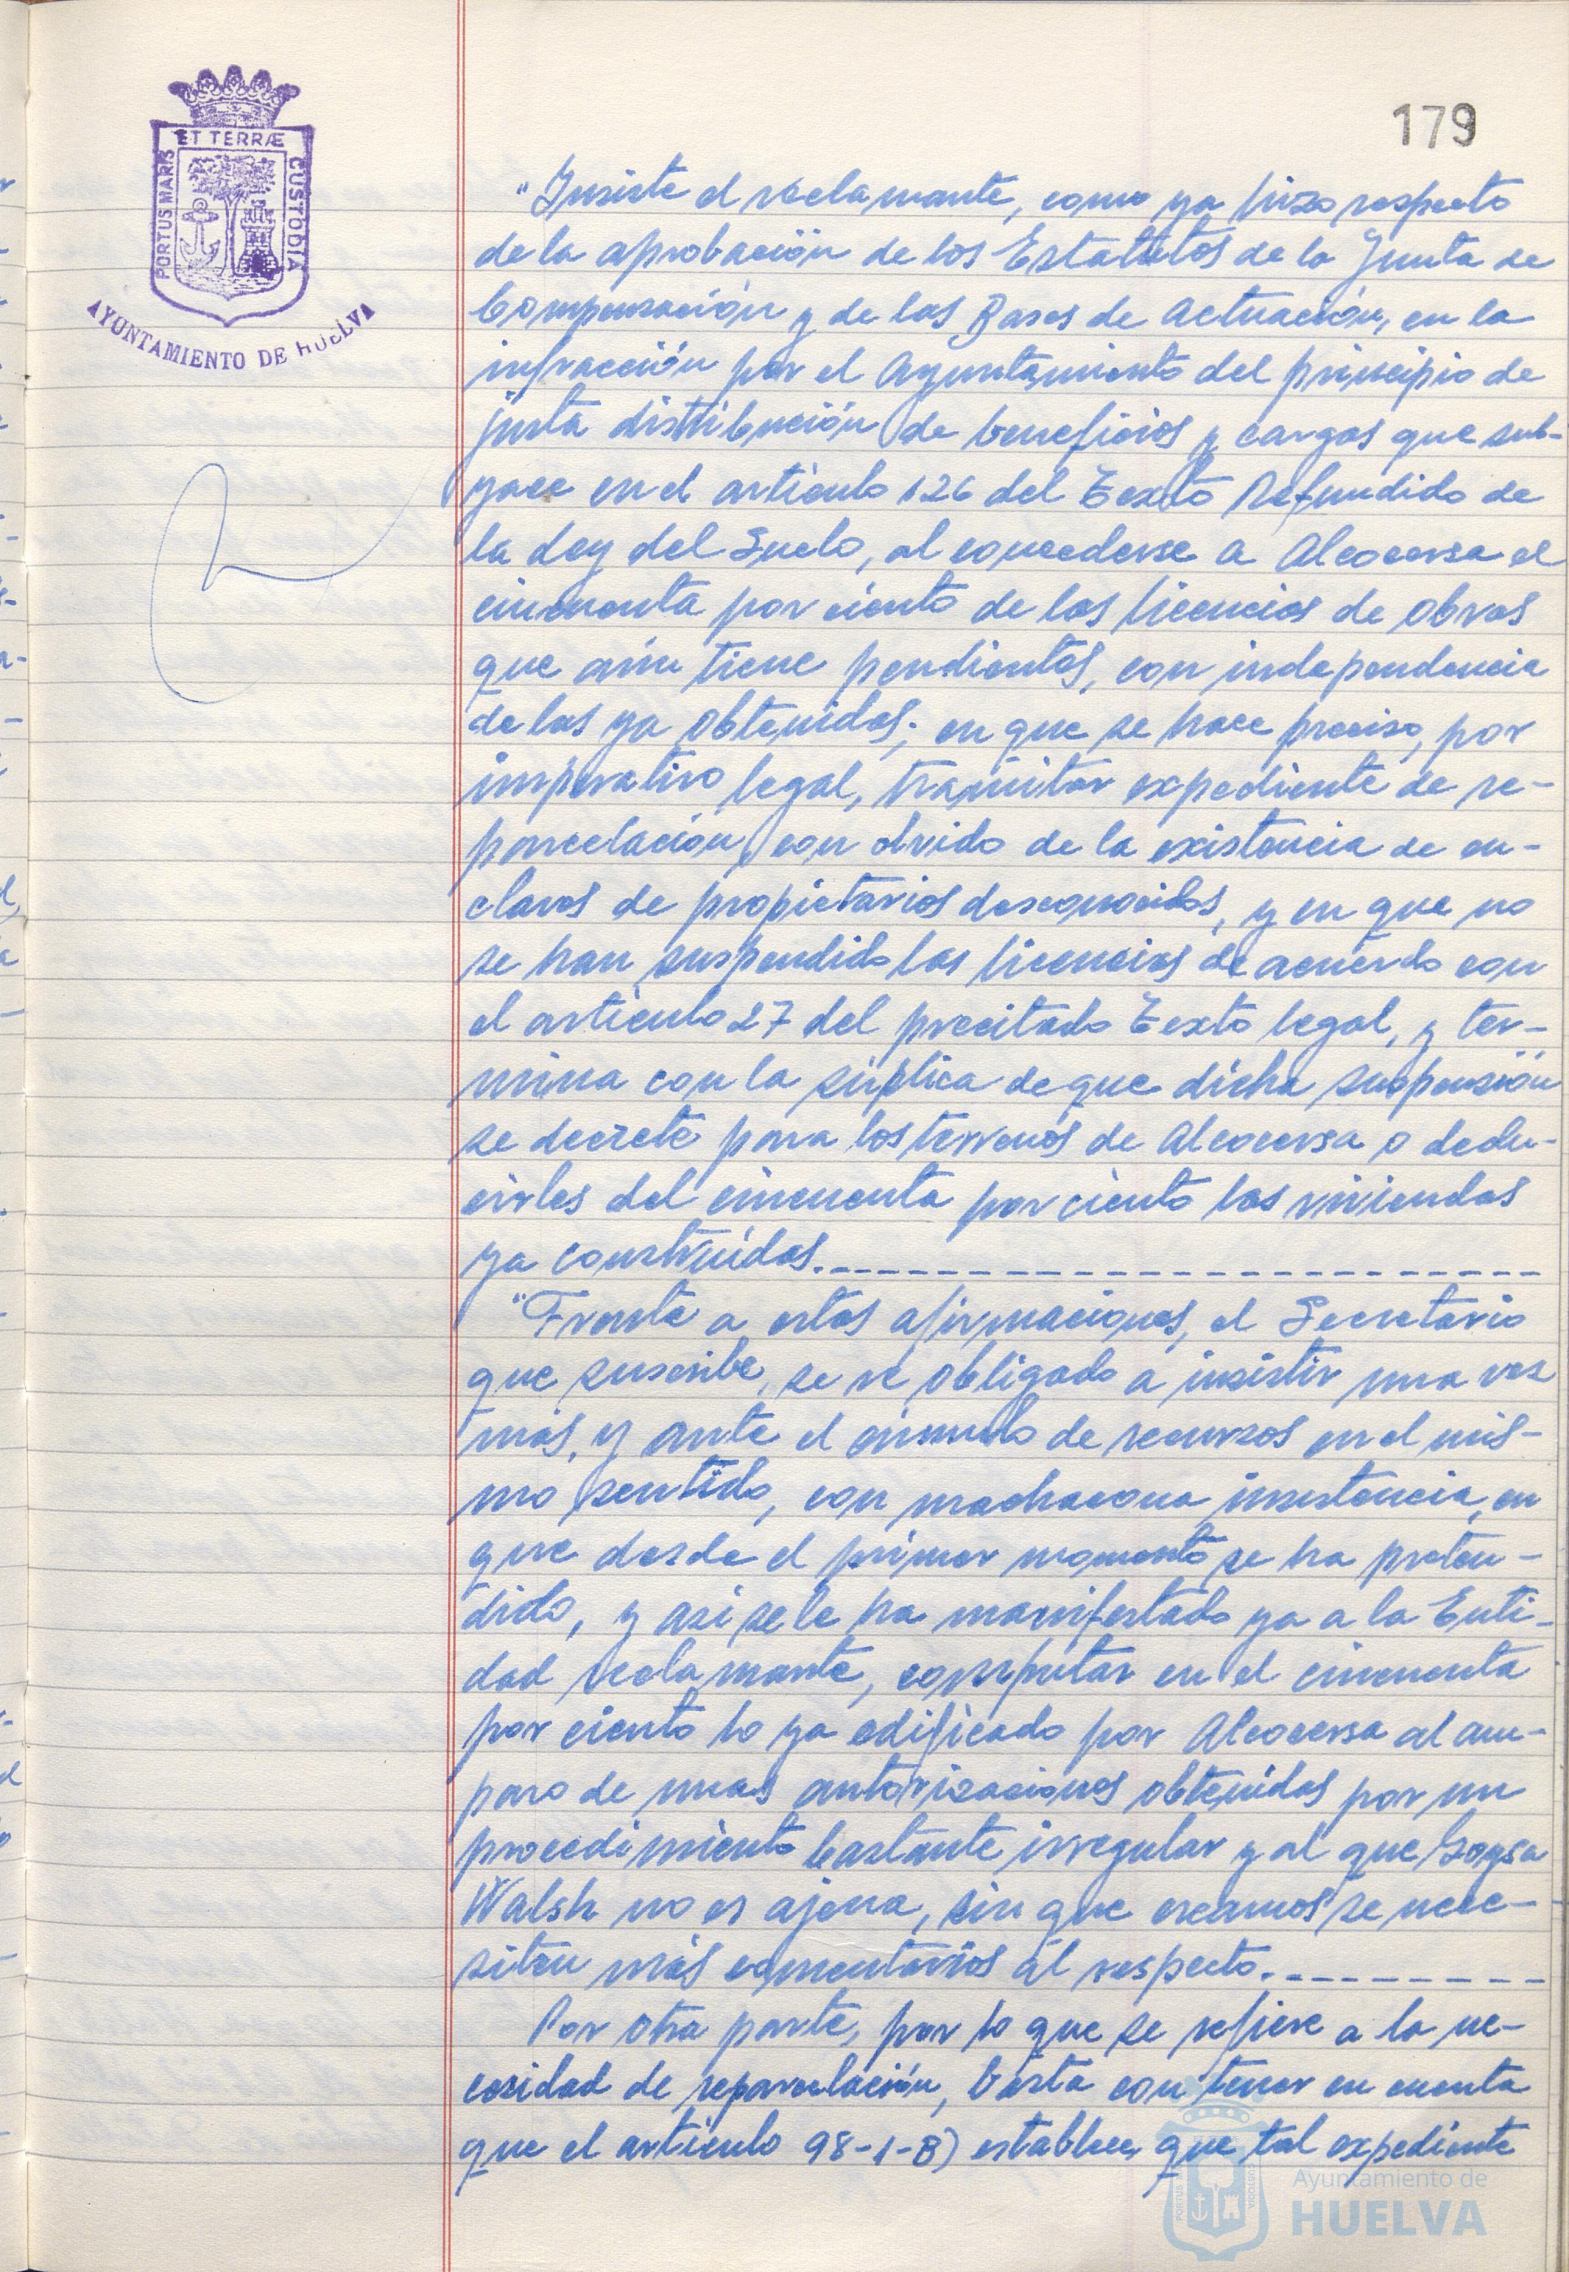 179
ET TERRÆ
PORTUS MARIS
CUSTODIA
AYUNTAMIENTO DE HUELVA
"Insiste el reclamante, como ya hizo respecto
de la aprobación de los Estatutos de la Junta de
Compensación y de las Bases de Actuación, en la
infracción por el Ayuntamiento del principio de
justa distribución de beneficios y cargas que sub-
yace en el artículo 126 del Texto Refundido de
la Ley del Suelo, al concederse a Alcocersa el
cincuenta por ciento de las licencias de obras
que aún tiene pendientes, con independencia
de las ya obtenidas; en que se hace preciso, por
imperativo legal, tramitar expediente de re-
parcelación, con olvido de la existencia de en-
claves de propietarios desconocidos, y en que no
se han suspendido las licencias de acuerdo con
el artículo 27 del precitado Texto legal, y ter-
mina con la súplica de que dicha suspensión
se decrete para los terrenos de Alcocersa o dedu-
cirles del cincuenta por ciento las viviendas
ya construídas.
"Frente a estas afirmaciones, el Secretario
que suscribe, se ve obligado a insistir una vez
más, y ante el cúmulo de recursos en el mis-
mo sentido, con machacona insistencia, en
que desde el primer momento se ha preten-
dido, y así se le ha manifestado ya a la Enti-
dad reclamante, computar en el cincuenta
por ciento lo ya edificado por Alcocersa al am-
paro de unas autorizaciones obtenidas por un
procedimiento bastante irregular y al que Goysa
Walsh no es ajena, sin que creamos se nece-
siten más comentarios al respecto.
Por otra parte, por lo que se refiere a la ne-
cesidad de reparcelación, basta con tener en cuenta
que el artículo 98-1-B) establece que tal expediente
Ayuntamiento de
HUELVA